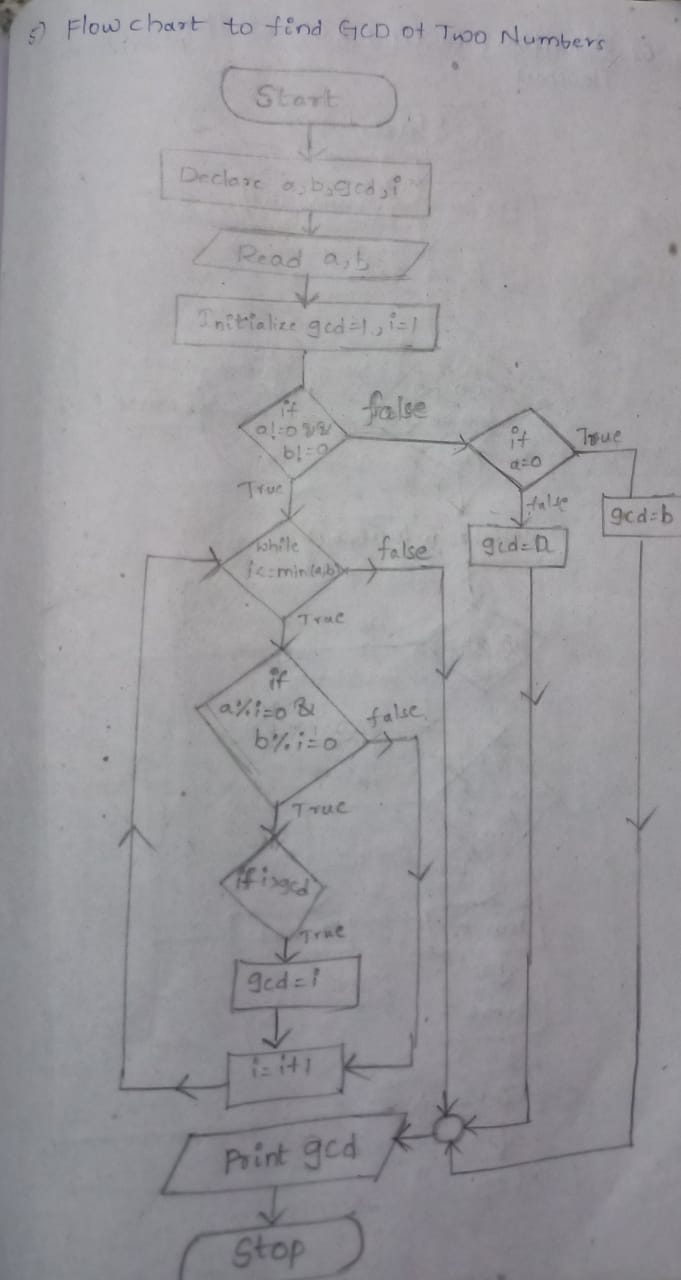 5) Flow chart to find GCD of Two Numbers
Start
Declare a,b,gcd,i
Read a,b
Initialize gcd=1, i=1
if
a!=0 &&
b!=0
false
True
if
a=0
True
false
gcd=b
gcd=a
while
i<=min(a,b)
false
True
if
a%i=0 &
b%i=0
false
True
if i>gcd
True
gcd=i
i=i+1
Print gcd
Stop